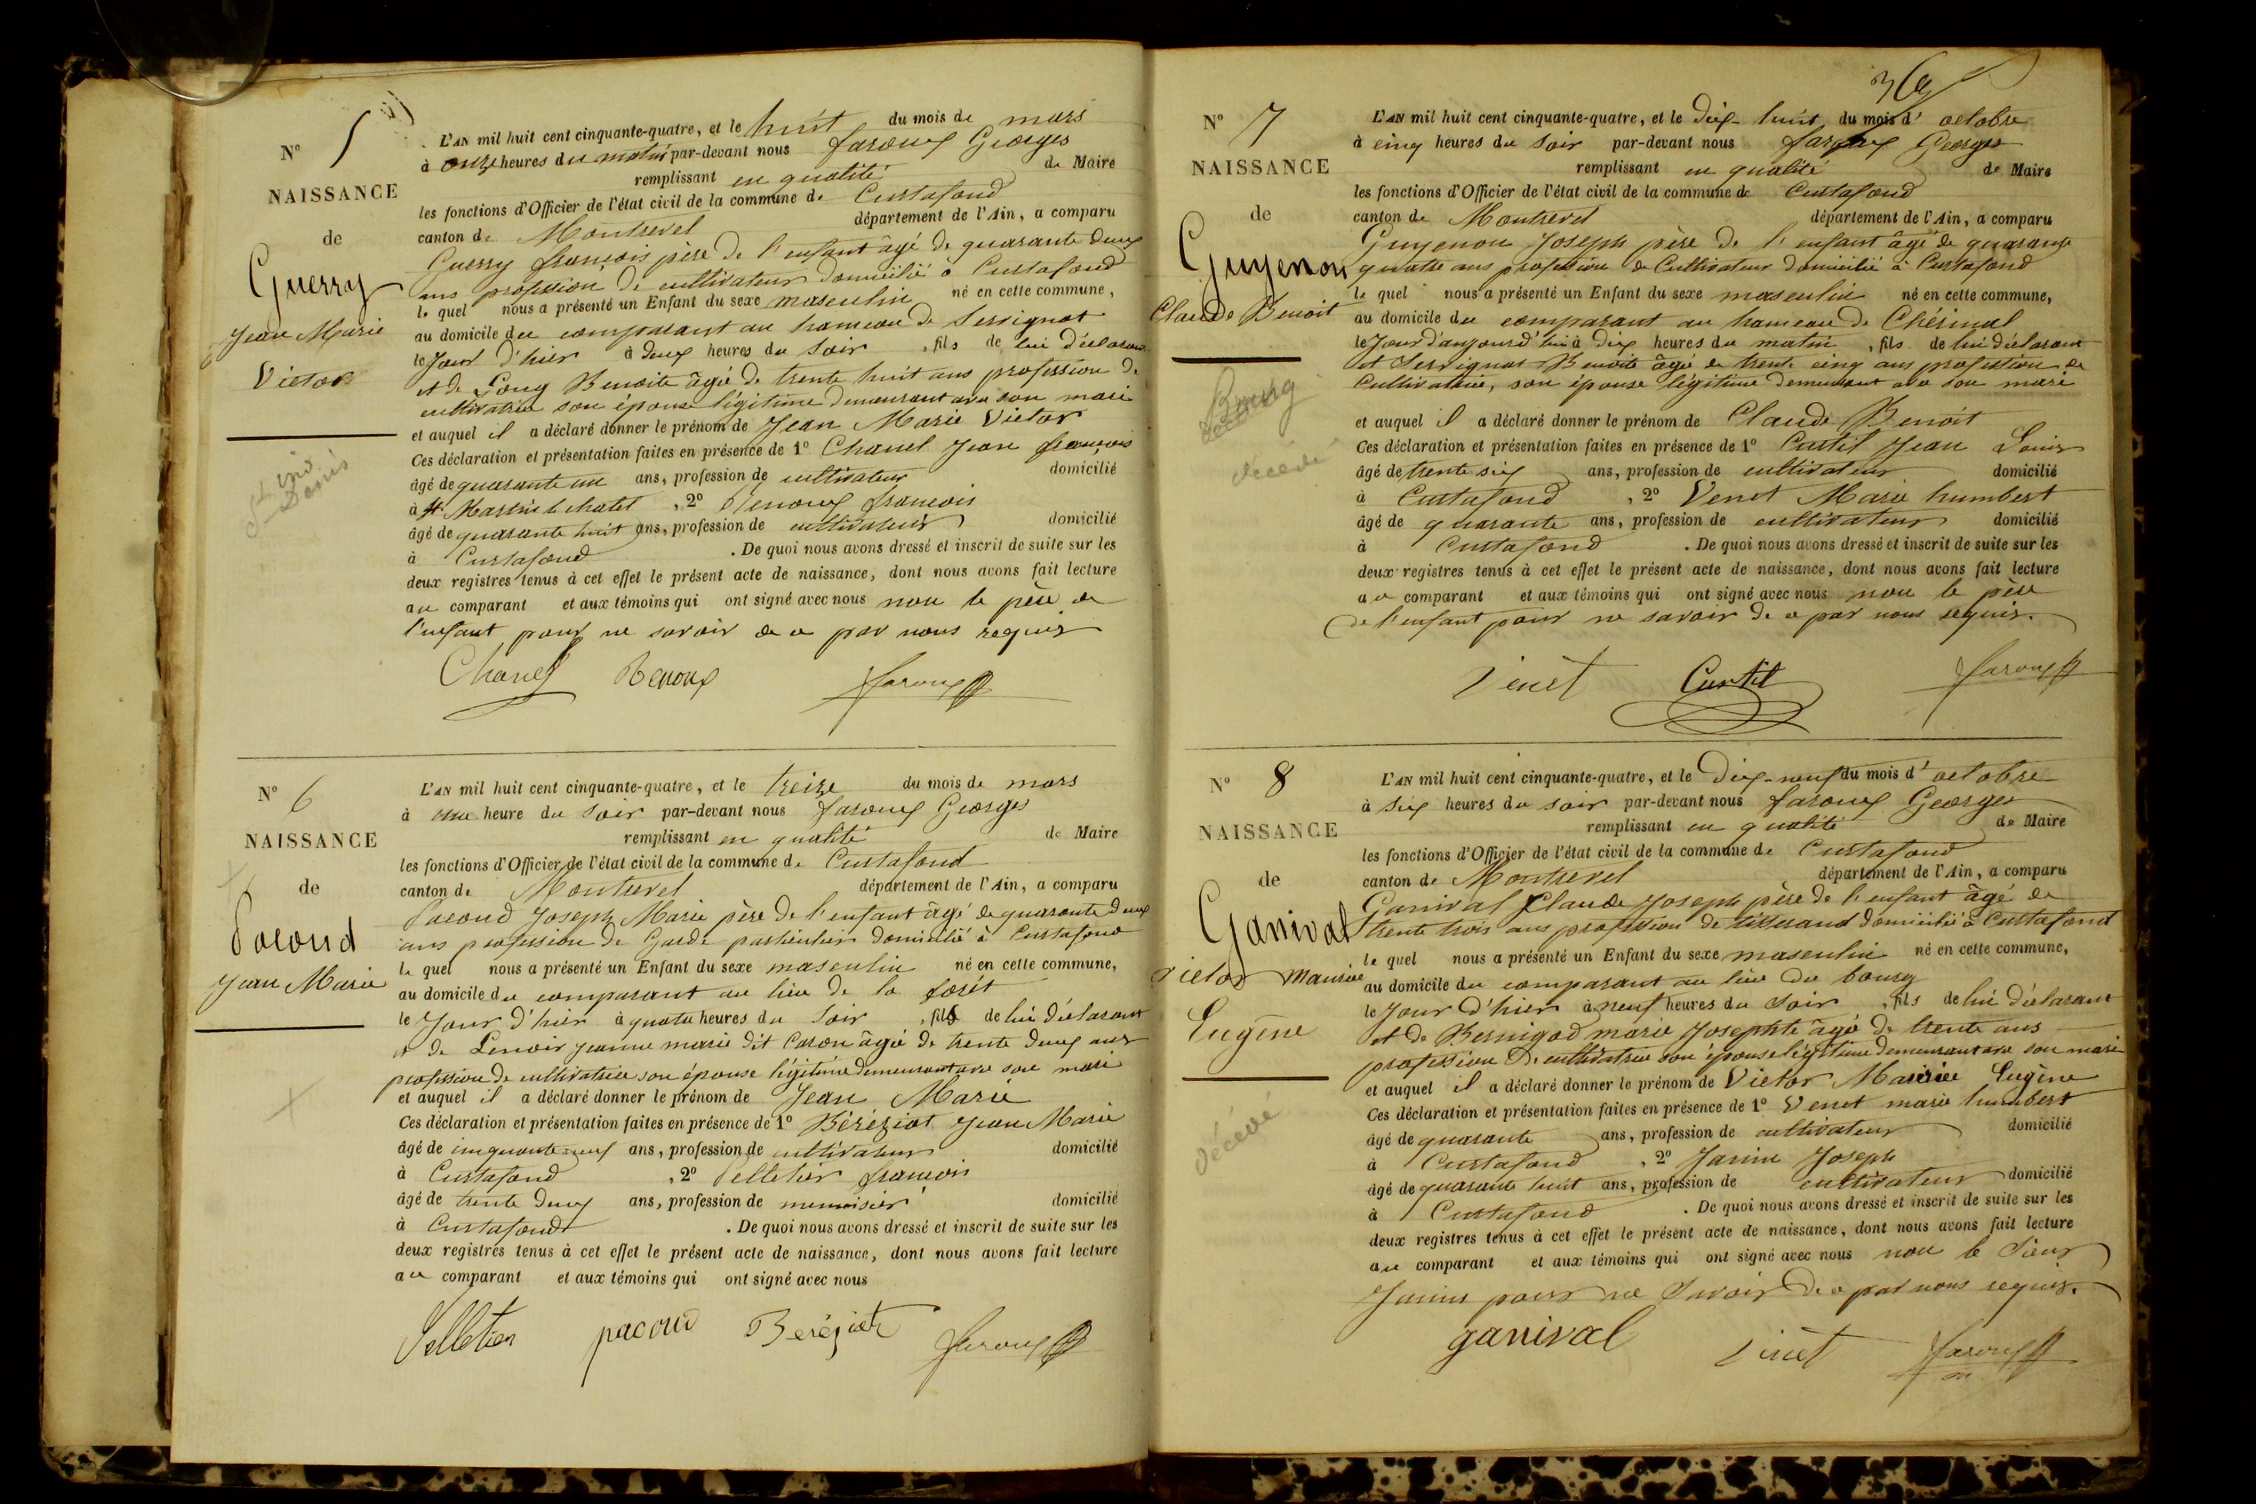 N° 5
NAISSANCE
de
Guerry
Jean Marie
Victor
St Denis
L'AN mil huit cent cinquante-quatre, et le huit du mois de mars
à onze heures du matin par-devant nous faroux Georges
remplissant en qualité de Maire
les fonctions d'Officier de l'état civil de la commune de Curtafond
canton de Montrevel département de l'Ain, a comparu
Guerry françois père de l'enfant âgé de quarante deux
ans profession de cultivateur domicilié à Curtafond
le quel nous a présenté un Enfant du sexe masculin né en cette commune,
au domicile du comparant au hameau de Servignat
le Jour d'hier à deux heures du Soir, fils de lui déclarant
et de Gouy Benoite âgée de trente huit ans profession de
cultivatrice son épouse légitime demeurant avec son mari
et auquel il a déclaré donner le prénom de Jean Marie Victor
Ces déclaration et présentation faites en présence de 1° Chanel Jean françois
âgé de quarante un ans, profession de cultivateur domicilié
à St Martin le chatel, 2° Renoux francois
âgé de quarante huit ans, profession de cultivateur domicilié
à Curtafond. De quoi nous avons dressé et inscrit de suite sur les
deux registres tenus à cet effet le présent acte de naissance, dont nous avons fait lecture
au comparant et aux témoins qui ont signé avec nous non le père de
l'enfant pour ne savoir de ce par nous requis
Chanel Renoux faroux
N° 6
NAISSANCE
de
Pacoud
Jean Marie
L'AN mil huit cent cinquante-quatre, et le treize du mois de mars
à une heure du Soir par-devant nous faroux Georges
remplissant en qualité de Maire
les fonctions d'Officier de l'état civil de la commune de Curtafond
canton de Montrevel département de l'Ain, a comparu
Pacoud Joseph Marie père de l'enfant âgé de quarante deux
ans profession de Garde particulier domicilié à Curtafond
le quel nous a présenté un Enfant du sexe masculin né en cette commune,
au domicile du comparant au lieu de la forêt
le Jour d'hier à quatre heures du Soir, fils de lui déclarant
et de Lenoir jeanne marie dit Caron âgée de trente deux ans
profession de cultivatrice son épouse légitime demeurant avec son mari
et auquel il a déclaré donner le prénom de Jean Marie
Ces déclaration et présentation faites en présence de 1° Béréziat Jean Marie
âgé de cinquante-neuf ans, profession de cultivateur domicilié
à Curtafond, 2° Pelletier francois
âgé de trente deux ans, profession de menuisier domicilié
à Curtafond. De quoi nous avons dressé et inscrit de suite sur les
deux registres tenus à cet effet le présent acte de naissance, dont nous avons fait lecture
au comparant et aux témoins qui ont signé avec nous
Pelletier pacoud Béréziat faroux
N° 7
NAISSANCE
de
Guyenon
Claude Benoit
Bourg
décédé
L'AN mil huit cent cinquante-quatre, et le dix-huit du mois d'octobre
à cinq heures du Soir par-devant nous faroux Georges
remplissant en qualité de Maire
les fonctions d'Officier de l'état civil de la commune de Curtafond
canton de Montrevel département de l'Ain, a comparu
Guyenon Joseph père de l'enfant âgé de quarante
quatre ans profession de Cultivateur domicilié à Curtafond
le quel nous a présenté un Enfant du sexe masculin né en cette commune,
au domicile du comparant au hameau de Chérinal
le Jour d'aujourd'hui à dix heures du matin, fils de lui déclarant
et Servignat Benoite âgée de trente cinq ans profession de
Cultivatrice, son épouse légitime demeurant avec son mari
et auquel il a déclaré donner le prénom de Claude Benoit
Ces déclaration et présentation faites en présence de 1° Curtil Jean Louis
âgé de trente six ans, profession de cultivateur domicilié
à Curtafond, 2° Venet Marie humbert
âgé de quarante ans, profession de cultivateur domicilié
à Curtafond. De quoi nous avons dressé et inscrit de suite sur les
deux registres tenus à cet effet le présent acte de naissance, dont nous avons fait lecture
au comparant et aux témoins qui ont signé avec nous non le père
de l'enfant pour ne savoir de ce par nous requis.
Venet Curtil faroux
N° 8
NAISSANCE
de
Ganival
Victor Maurice
Eugène
Décédé
L'AN mil huit cent cinquante-quatre, et le Dix-neuf du mois d'octobre
à six heures du soir par-devant nous faroux Georges
remplissant en qualité de Maire
les fonctions d'Officier de l'état civil de la commune de Curtafond
canton de Montrevel département de l'Ain, a comparu
Ganival Claude Joseph père de l'enfant âgé de
trente trois ans profession de tisserand domicilié à Curtafond
le quel nous a présenté un Enfant du sexe masculin né en cette commune,
au domicile du comparant au lieu du bourg
le Jour d'hier à neuf heures du Soir, fils de lui déclarant
et de Bernigod marie Josephte âgée de trente ans
profession de cultivatrice son épouse légitime demeurant avec son mari
et auquel il a déclaré donner le prénom de Victor Maurice Eugène
Ces déclaration et présentation faites en présence de 1° Venet marie humbert
âgé de quarante ans, profession de cultivateur domicilié
à Curtafond, 2° Janin Joseph
âgé de quarante huit ans, profession de cultivateur domicilié
à Curtafond. De quoi nous avons dressé et inscrit de suite sur les
deux registres tenus à cet effet le présent acte de naissance, dont nous avons fait lecture
au comparant et aux témoins qui ont signé avec nous non le Sieur
Janin pour ne Savoir de ce par nous requis.
ganival Venet faroux